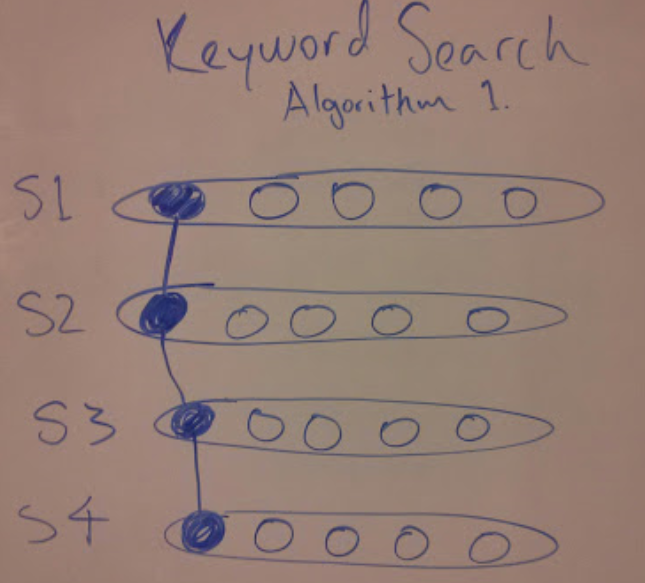 Keyword Search
Algorithm 1.
S1
S2
S3
S4